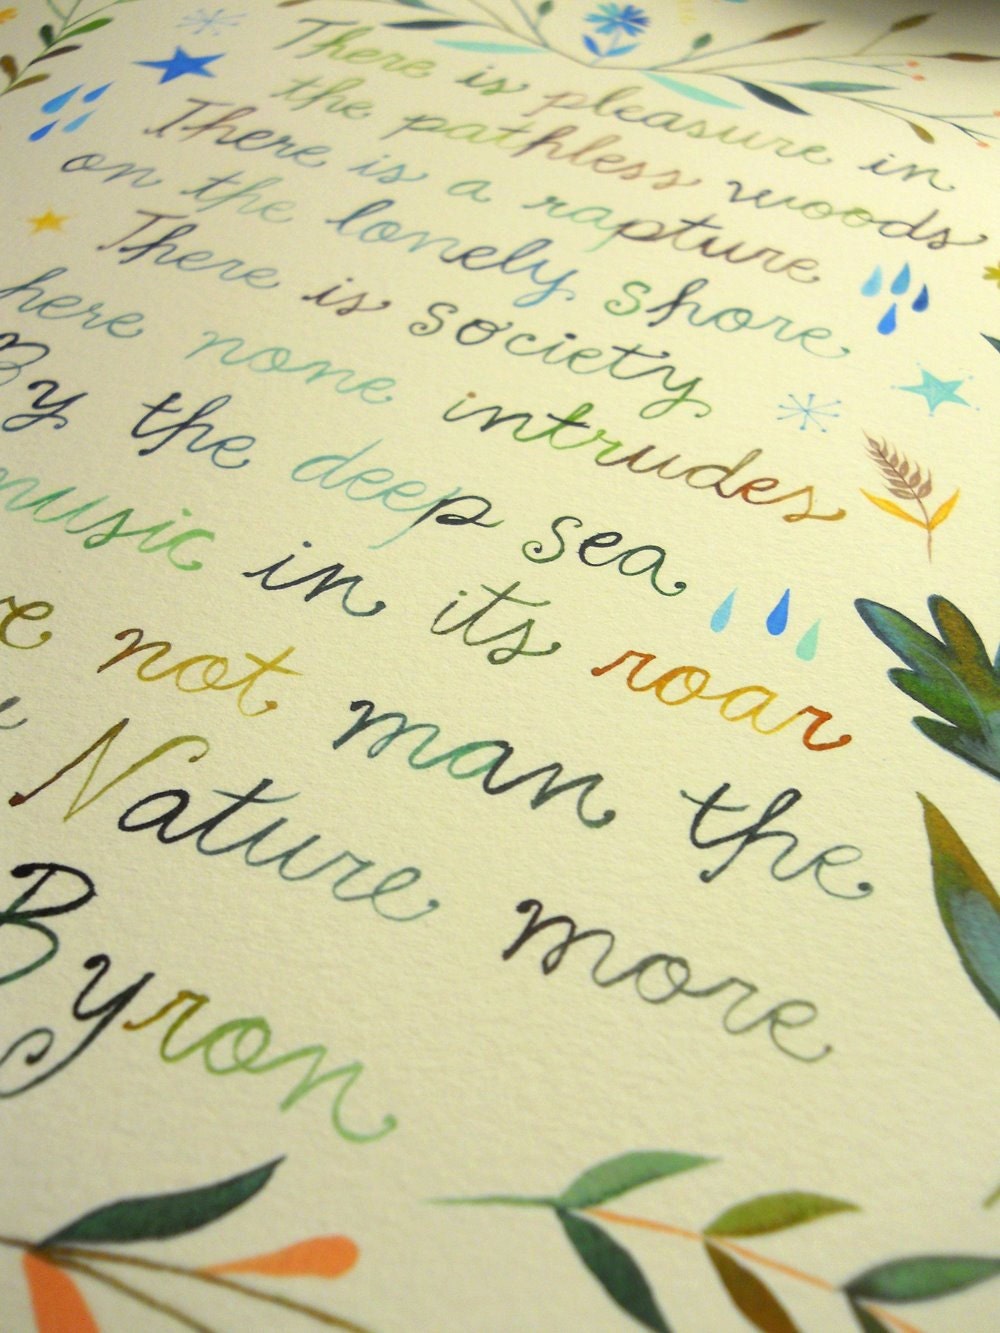 There is pleasure in
the pathless woods
There is a rapture
on the lonely shore
There is society
here none intrudes
By the deep sea
music in its roar
not man the
Nature more
Byron